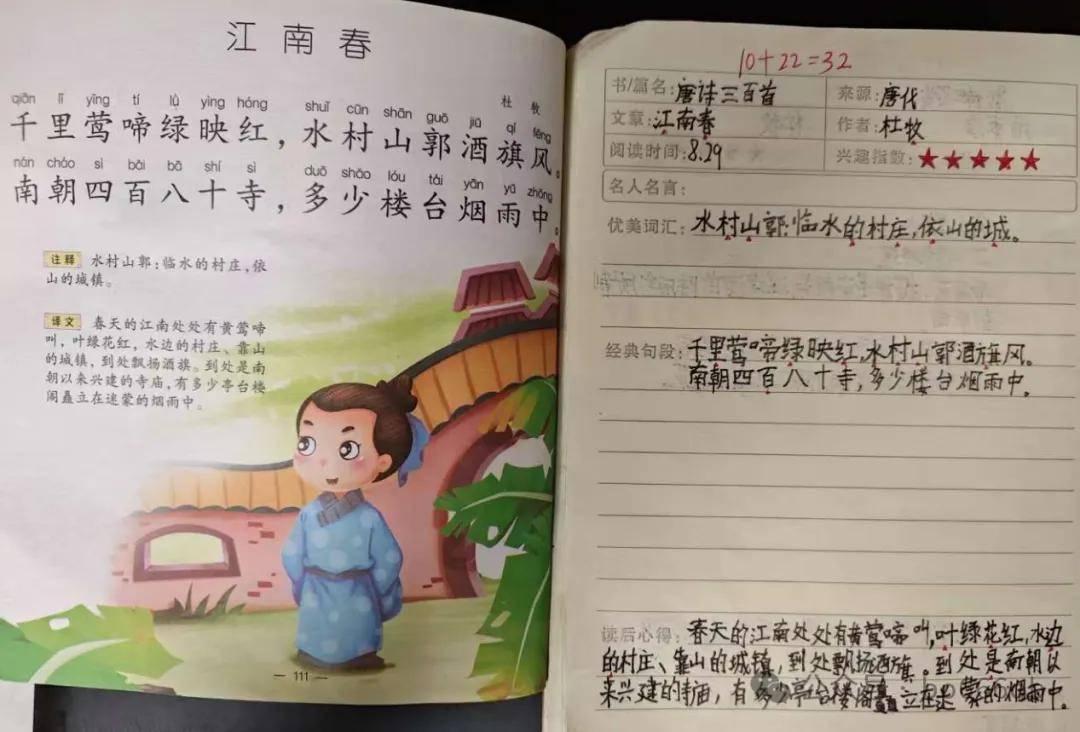 江南春
杜牧
qiān lǐ yīng tí lǜ yìng hóng
shuǐ cūn shān guō jiǔ qí fēng
千里莺啼绿映红，水村山郭酒旗风。
nán cháo sì bǎi bā shí sì
duō shǎo lóu tái yān yǔ zhōng
南朝四百八十寺，多少楼台烟雨中。
注释 水村山郭：临水的村庄，依
山的城镇。
译文 春天的江南处处有黄莺啼
叫，叶绿花红，水边的村庄、靠山
的城镇，到处飘扬酒旗。到处是南
朝以来兴建的寺庙，有多少亭台楼
阁矗立在迷蒙的烟雨中。
— 111 —
10+22=32
书/篇名：唐诗三百首
来源：唐代
文章：江南春
作者：杜牧
阅读时间：8.29
兴趣指数：★★★★★
名人名言：
优美词汇：水村山郭：临水的村庄，依山的城。
经典句段：千里莺啼绿映红，水村山郭酒旗风。
南朝四百八十寺，多少楼台烟雨中。
读后心得：春天的江南处处有黄莺啼叫，叶绿花红，水边
的村庄、靠山的城镇，到处飘扬酒旗。到处是南朝以
来兴建的寺庙，有多少亭台楼阁矗立在迷蒙的烟雨中。